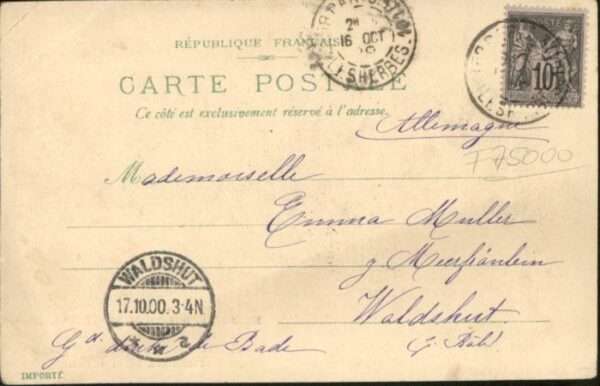 RÉPUBLIQUE FRANÇAISE
CARTE POSTALE
Ce côté est exclusivement réservé à l'adresse.
2E
16 OCT
MALESHERBES
POSTE
10
Allemagne
775000
Mademoiselle
Emma Muller
z Meerfräulein
Waldshut
WALDSHUT
17.10.00.3-4N
Gd duché de Bade
IMPORTÉ